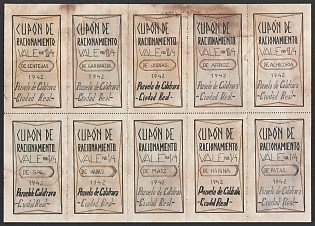 CUPÓN DE
RACIONAMIENTO
VALE POR 1/4
DE LENTEJAS
1942
Pozuelo de Calatrava
-Ciudad Real-
CUPÓN DE
RACIONAMIENTO
VALE POR 1/4
DE GARBANZOS
1942
Pozuelo de Calatrava
-Ciudad Real-
CUPÓN DE
RACIONAMIENTO
VALE POR 1/4
DE JUDIAS
1942
Pozuelo de Calatrava
-Ciudad Real-
CUPÓN DE
RACIONAMIENTO
VALE POR 1/4
DE ARROZ
1942
Pozuelo de Calatrava
-Ciudad Real-
CUPÓN DE
RACIONAMIENTO
VALE POR 1/4
DE ACHICORIA
1942
Pozuelo de Calatrava
-Ciudad Real-
CUPÓN DE
RACIONAMIENTO
VALE POR 1/4
DE SAL
1942
Pozuelo de Calatrava
-Ciudad Real-
CUPÓN DE
RACIONAMIENTO
VALE POR 1/4
DE HABAS
1942
Pozuelo de Calatrava
-Ciudad Real-
CUPÓN DE
RACIONAMIENTO
VALE POR 1/4
DE MAIZ
1942
Pozuelo de Calatrava
-Ciudad Real-
CUPÓN DE
RACIONAMIENTO
VALE POR 1/4
DE HARINA
1942
Pozuelo de Calatrava
-Ciudad Real-
CUPÓN DE
RACIONAMIENTO
VALE POR 1/4
DE PATAS
1942
Pozuelo de Calatrava
-Ciudad Real-